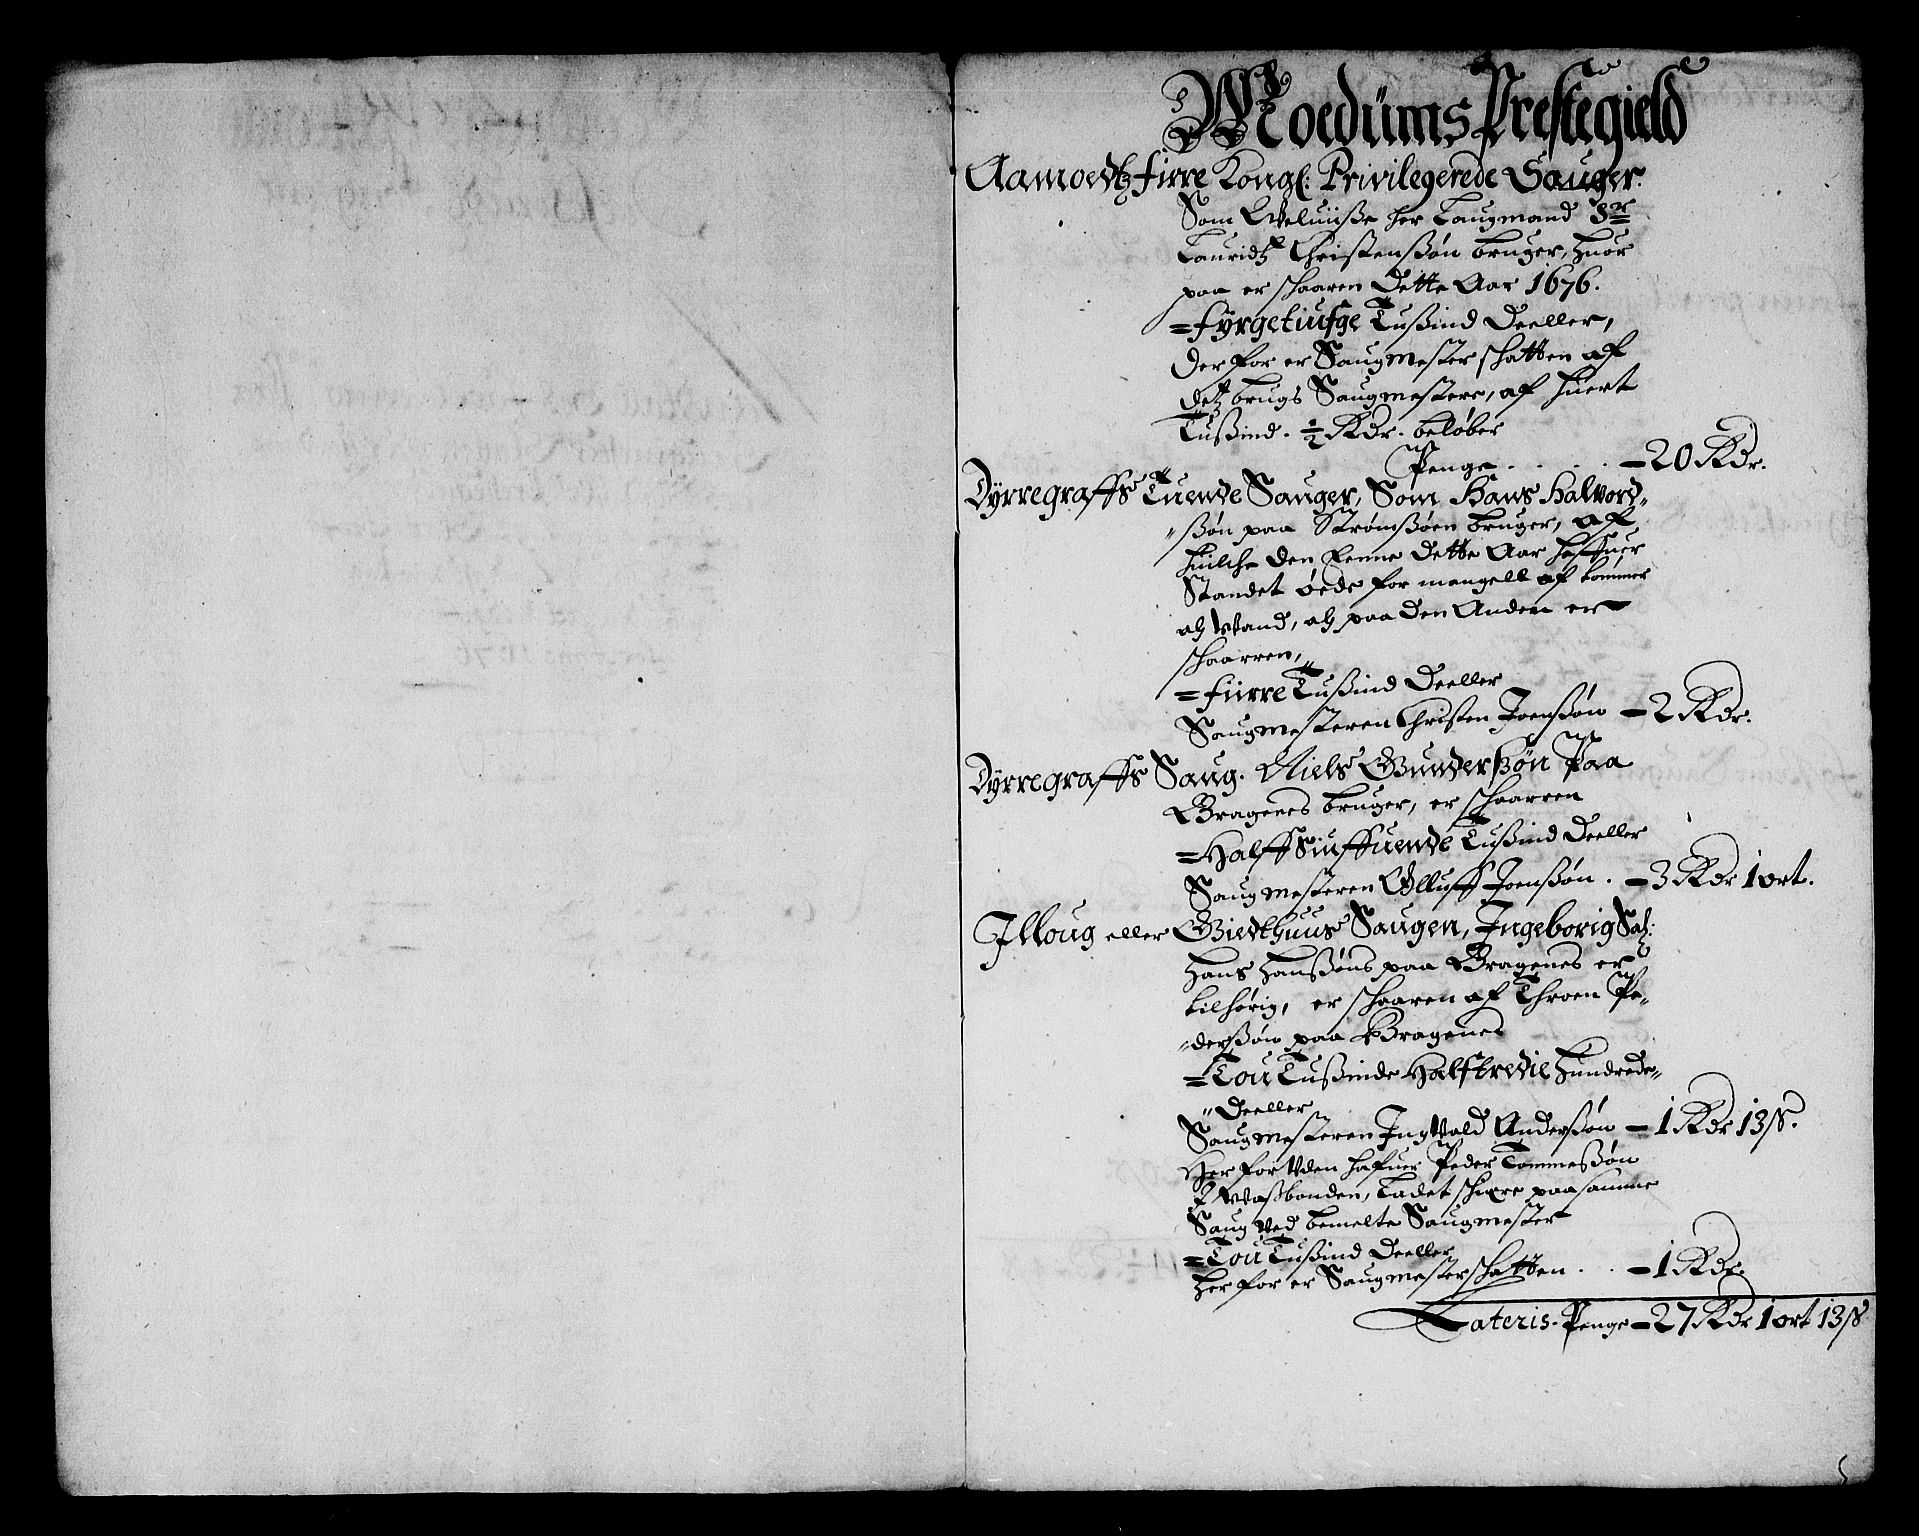 Moedums Prestegield
Aamoedtz firre Kongl: Privilegerede Sauger.
Som Welwiisse her Laugmand Sr
Lauridtz Christenssøn bruger, huor
paa er schaaren Dette Aar 1676.
= fyrgetiufge Tussind Deeller,
der for er Saugmester schatten af
detz brugs Saugmestere, af huert
Tussind. ½ Rdr. beløber
Penge . . . . . - 20 Rdr.
Dyrregraffs Tuende Sauger, Som Hans Halvord„
„ssøn paa Strømssøen bruger, af
huilche den Eenne dette Aar haffuer
Standet øede for mangell af tømmer
og Wand, og paa den Anden er
schaarren,
= fiirre Tussind Deeller
Saugmesteren Christen Joenssøn - 2 Rdr.
Dyrregraffs Saug. Niels Gunderssøn Paa
Bragenes bruger, er schaarren
= Halff Siuffuende Tussind Deeller
Saugmesteren Olluff Joenssøn . - 3 Rdr 1 ort.
Jlloug eller Giedthuus Saugen, Ingeborig Sal:
Hans Hanssøns paa Bragenes er
tilhørig, er schaaren af Throen Pe„
„derssøn paa Bragenes
= Tou Tussinde Halftredie Hundrede„
„Deeller
Saugmesteren Ingvald Anderssøn - 1 Rdr 13 s.
Her for uden hafuer Peder Tommessøn
J Wassbonden, Ladet schiere paa samme
Saug ved bemelte Saugmester
= Tou Tussind Deeller
Her for er Saugmester schatten . . - 1 Rdr.
Lateris. Penge - 27 Rdr 1 ort 13 s